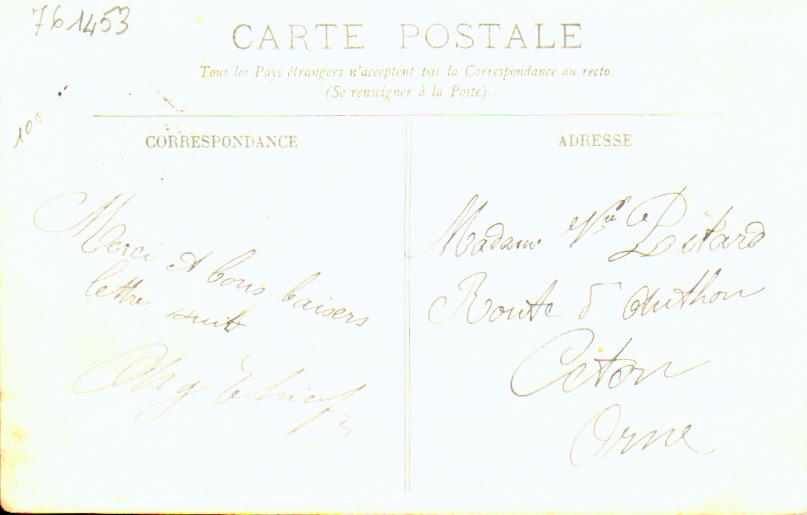 761453
CARTE POSTALE
Tous les Pays étrangers n'acceptent pas la Correspondance au recto
(Se renseigner à la Poste).
100
CORRESPONDANCE
ADRESSE
Merci et bons baisers
lettre suit
Madame Vve Pitard
Route d'Authon
Ceton
Orne